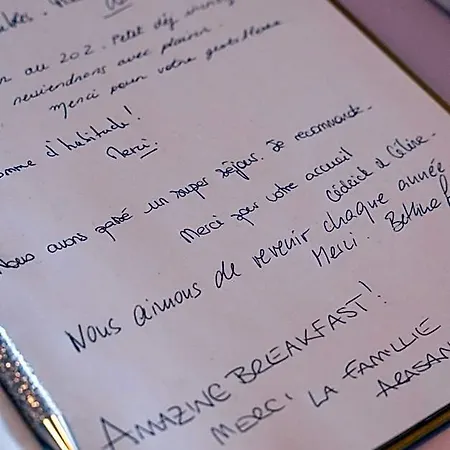 au 202. Petit déj
reviendrons avec plaisir.
Merci pour votre gentillesse
comme d'habitude!
Merci.
Nous avons passé un super séjour. Je recommande.
Merci pour votre accueil
Cédric & Céline.
Nous aimons de revenir chaque année
Merci. Bettina
AMAZING BREAKFAST!
MERCI LA FAMILLE